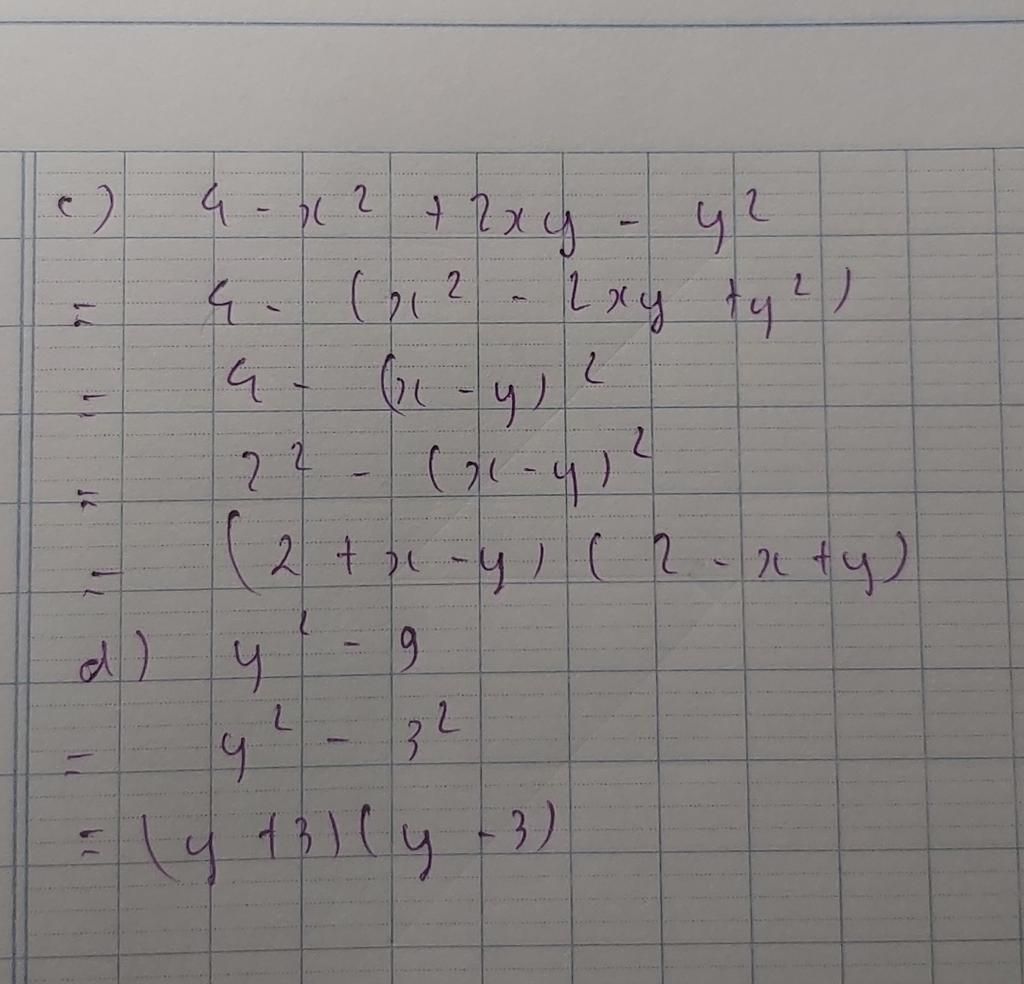 c) 4 - x² + 2xy - y²
= 4 - (x² - 2xy + y²)
= 4 - (x - y)²
= 2² - (x - y)²
= (2 + x - y) (2 - x + y)
d) y² - 9
= y² - 3²
= (y + 3)(y - 3)